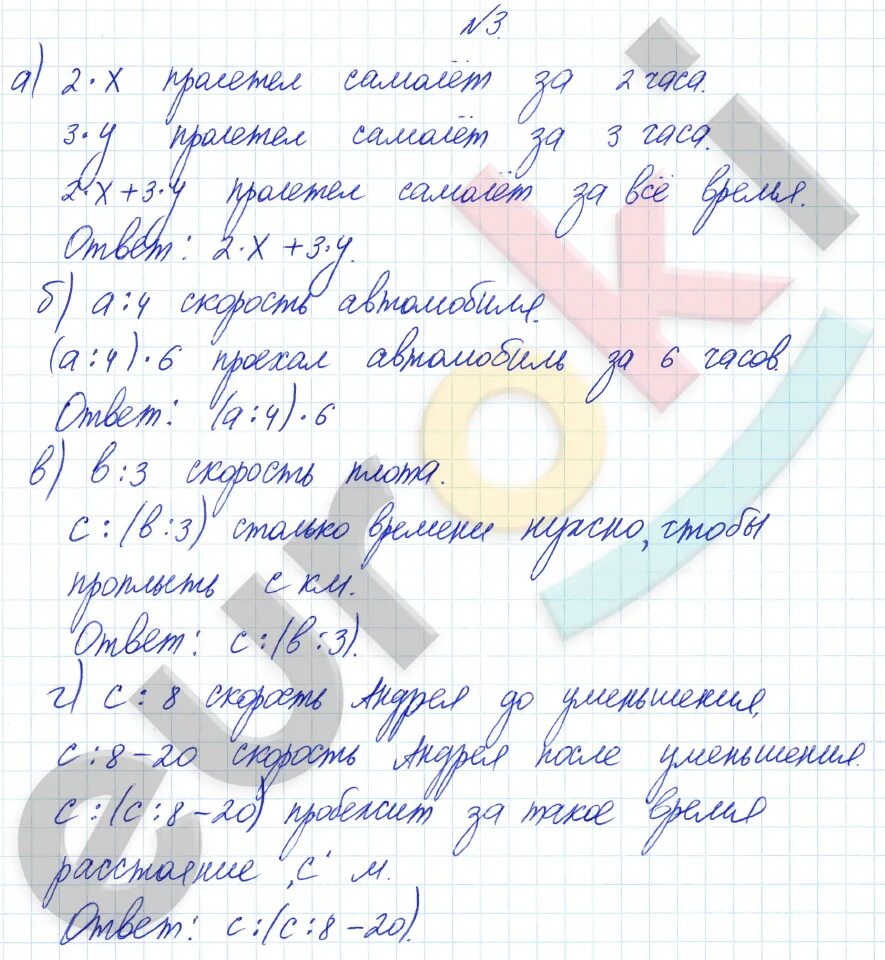 №3.
а) 2·x пролетел самолёт за 2 часа.
3·y пролетел самолёт за 3 часа.
2·x+3·y пролетел самолёт за всё время.
Ответ: 2·x+3·y.
б) a:4 скорость автомобиля.
(a:4)·6 проехал автомобиль за 6 часов.
Ответ: (a:4)·6
в) в:3 скорость плота.
c:(в:3) столько времени нужно, чтобы
проплыть с км.
Ответ: c:(в:3).
г) c:8 скорость Андрея до уменьшения,
c:8-20 скорость Андрея после уменьшения.
c:(c:8-20) пробежит за такое время
расстояние „с" м.
Ответ: c:(c:8-20).
euroki